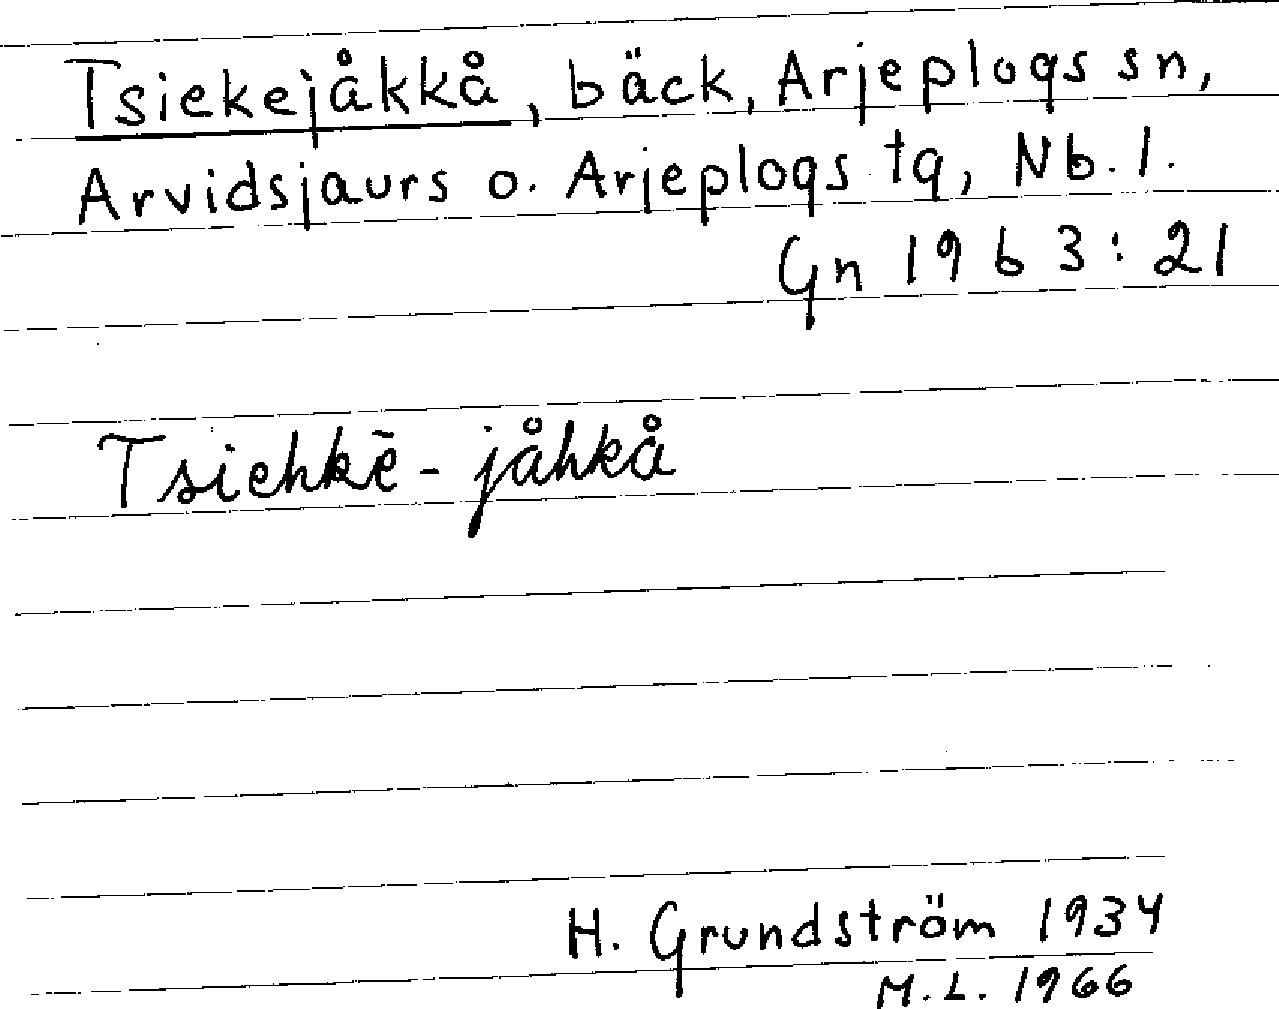 Tsiekejåkkå, bäck, Arjeplogs sn,
Arvidsjaurs o. Arjeplogs tg, Nb. l.
Gn 1963:21
Tsiehkē-jåhkå
H. Grundström 1934
M.L. 1966